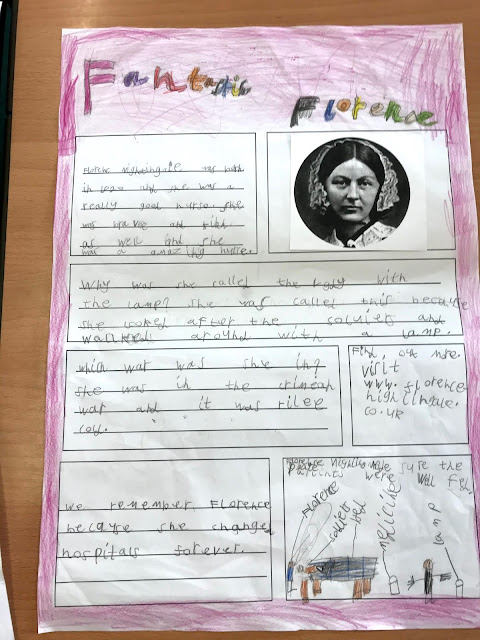 Fantastic
Florence
Florence Nightingale was born
in 1820 and she was a
really good nurse. she
was brave and kind
as well and she
was a amazing nurse.
Why was she called the lady with
the lamp? she was called this because
she looked after the solviers and
walked around with a lamp.
which war was she in?
she was in the crimean
war and it was rilee
coy.
Find out more.
visit
www.florence
nightingue.
co.uk
we remember Florence
because she changed
hospitals forever.
Florence Nightingale sure the
were Well Fed
Florence
soldiers
bed
medicine
lamp